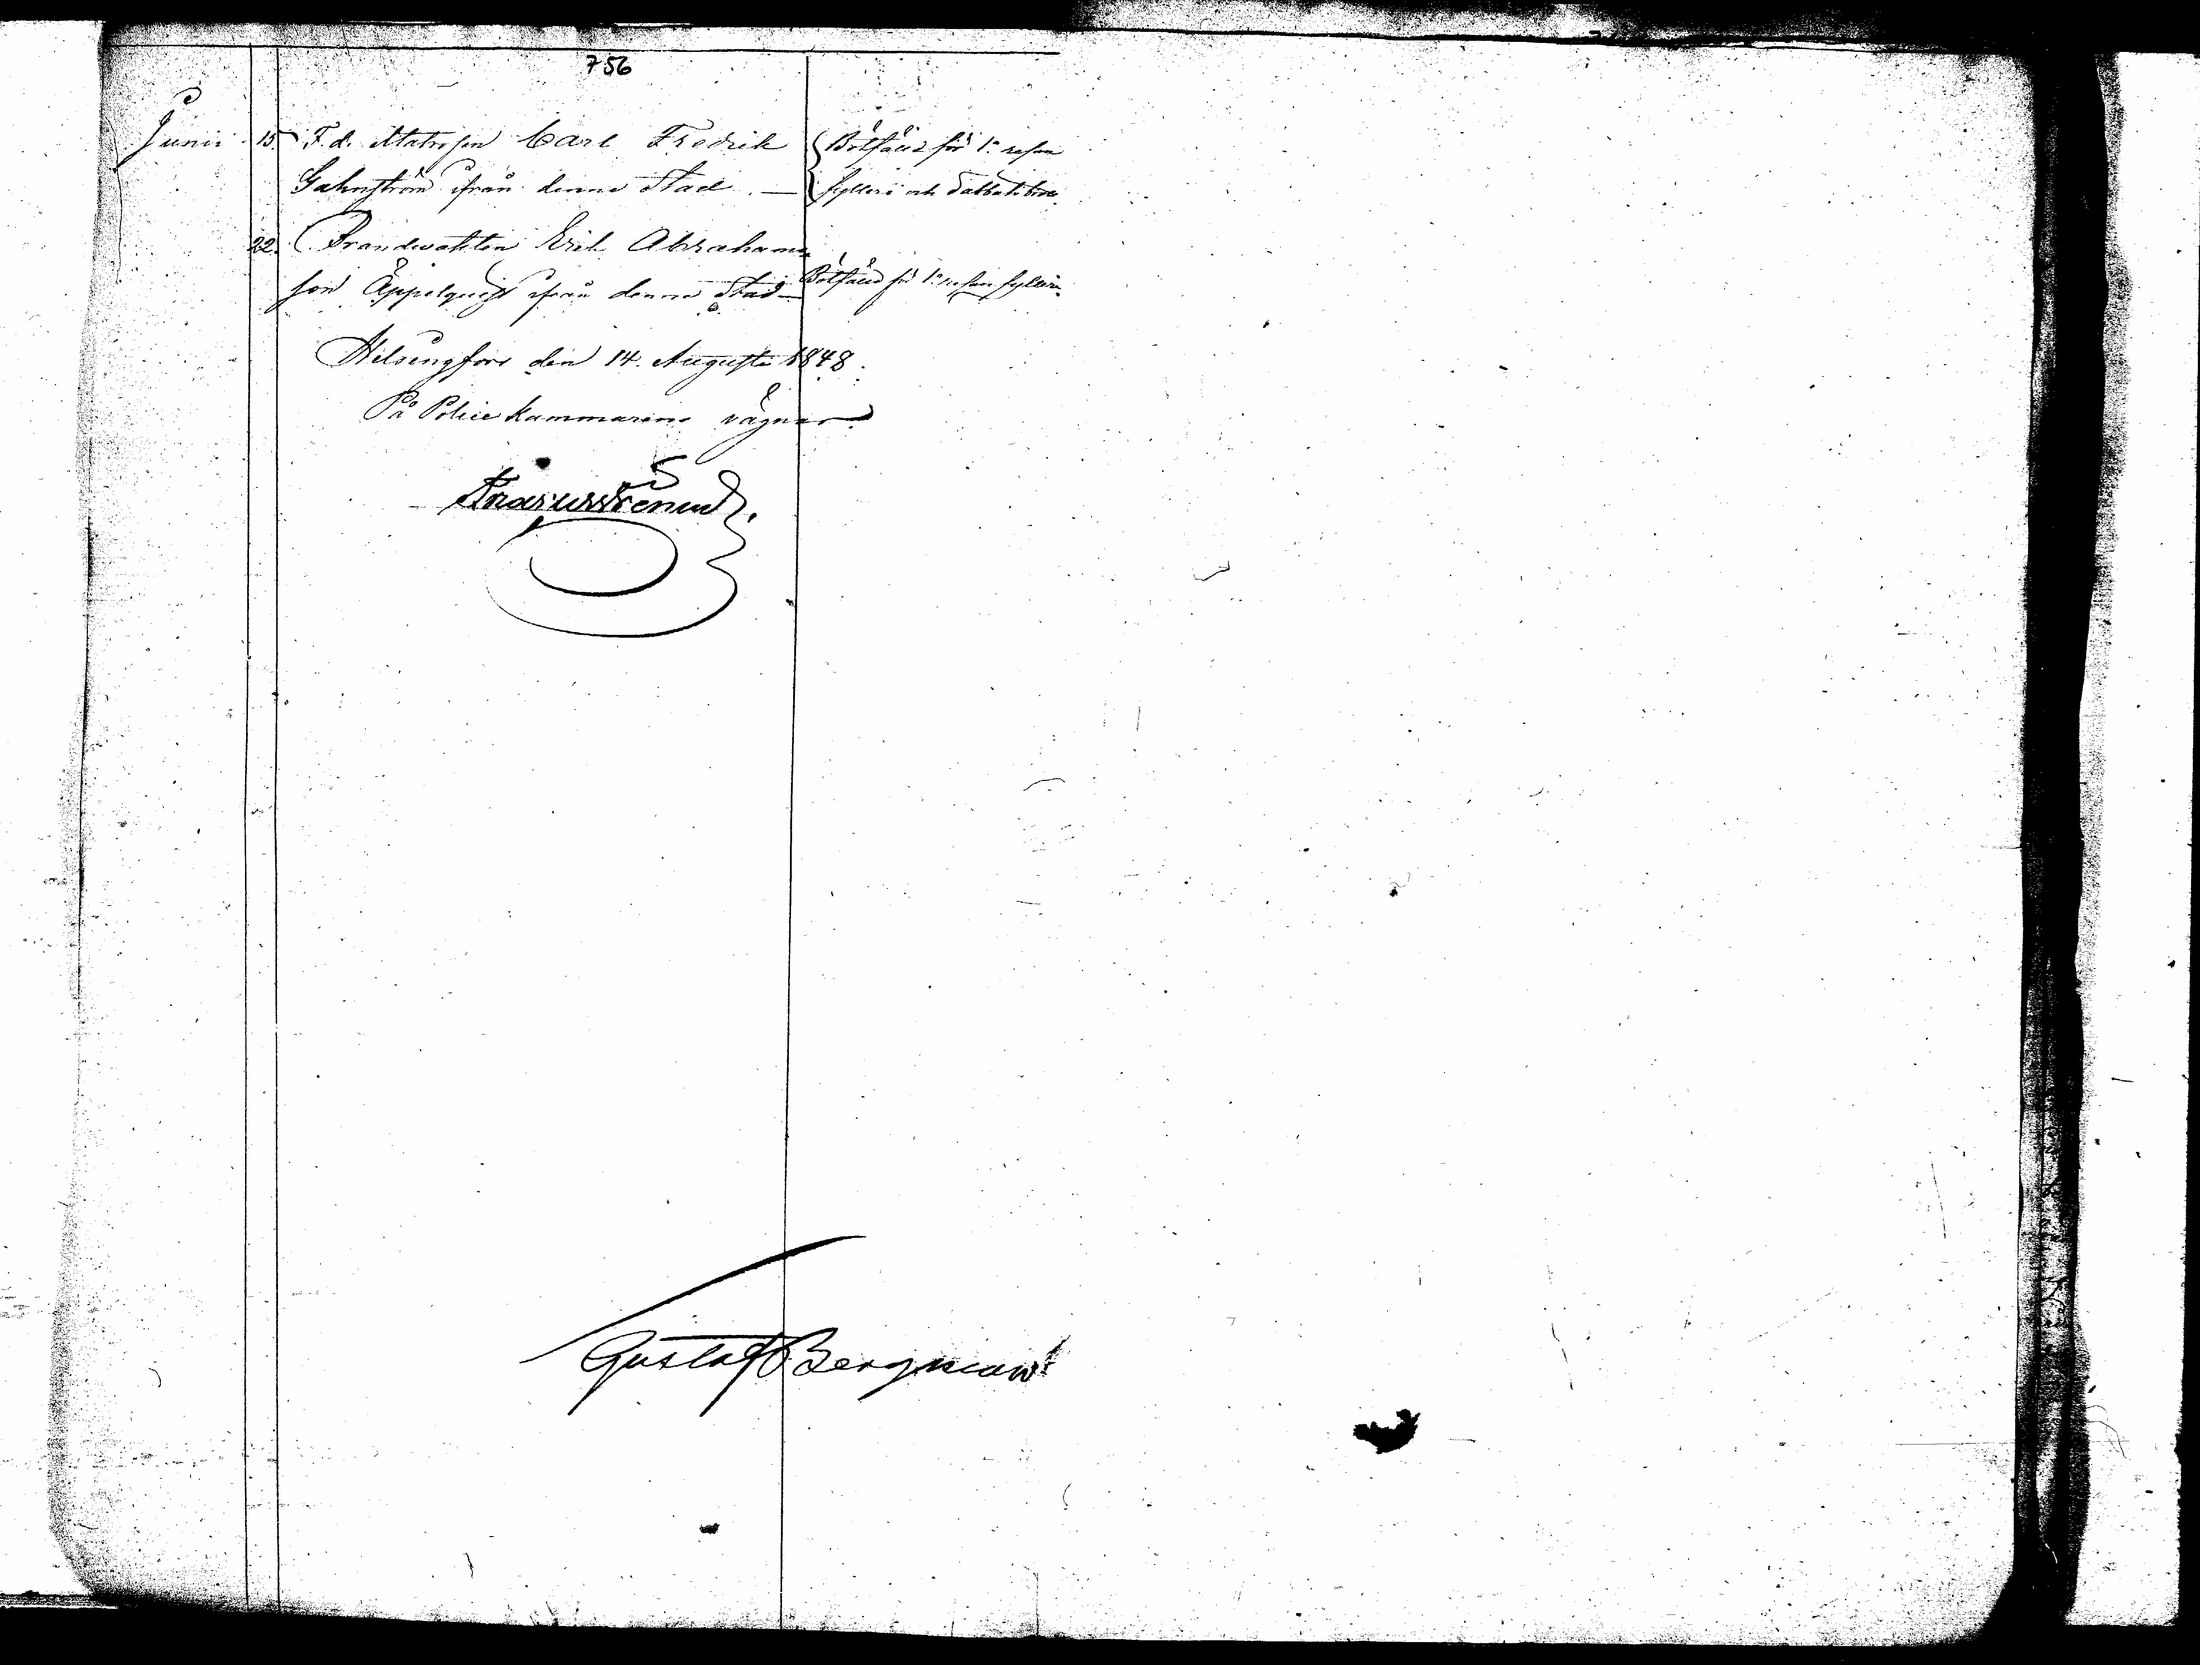 756
Junii 15. F. d. Matrosen Carl Fredrik
Galmström ifrån denne Stad. —
Bötfäld för 1a resan
fylleri och Sabbatsbrott
22. Brandwakten Erik Abrahams
son Äppelquist ifrån denne Stad —
Bötfäld för 1a resan fylleri.
Helsingfors den 14. Augusti 1848.
På Police Kammarens vägnar.
Gustaf Bergman